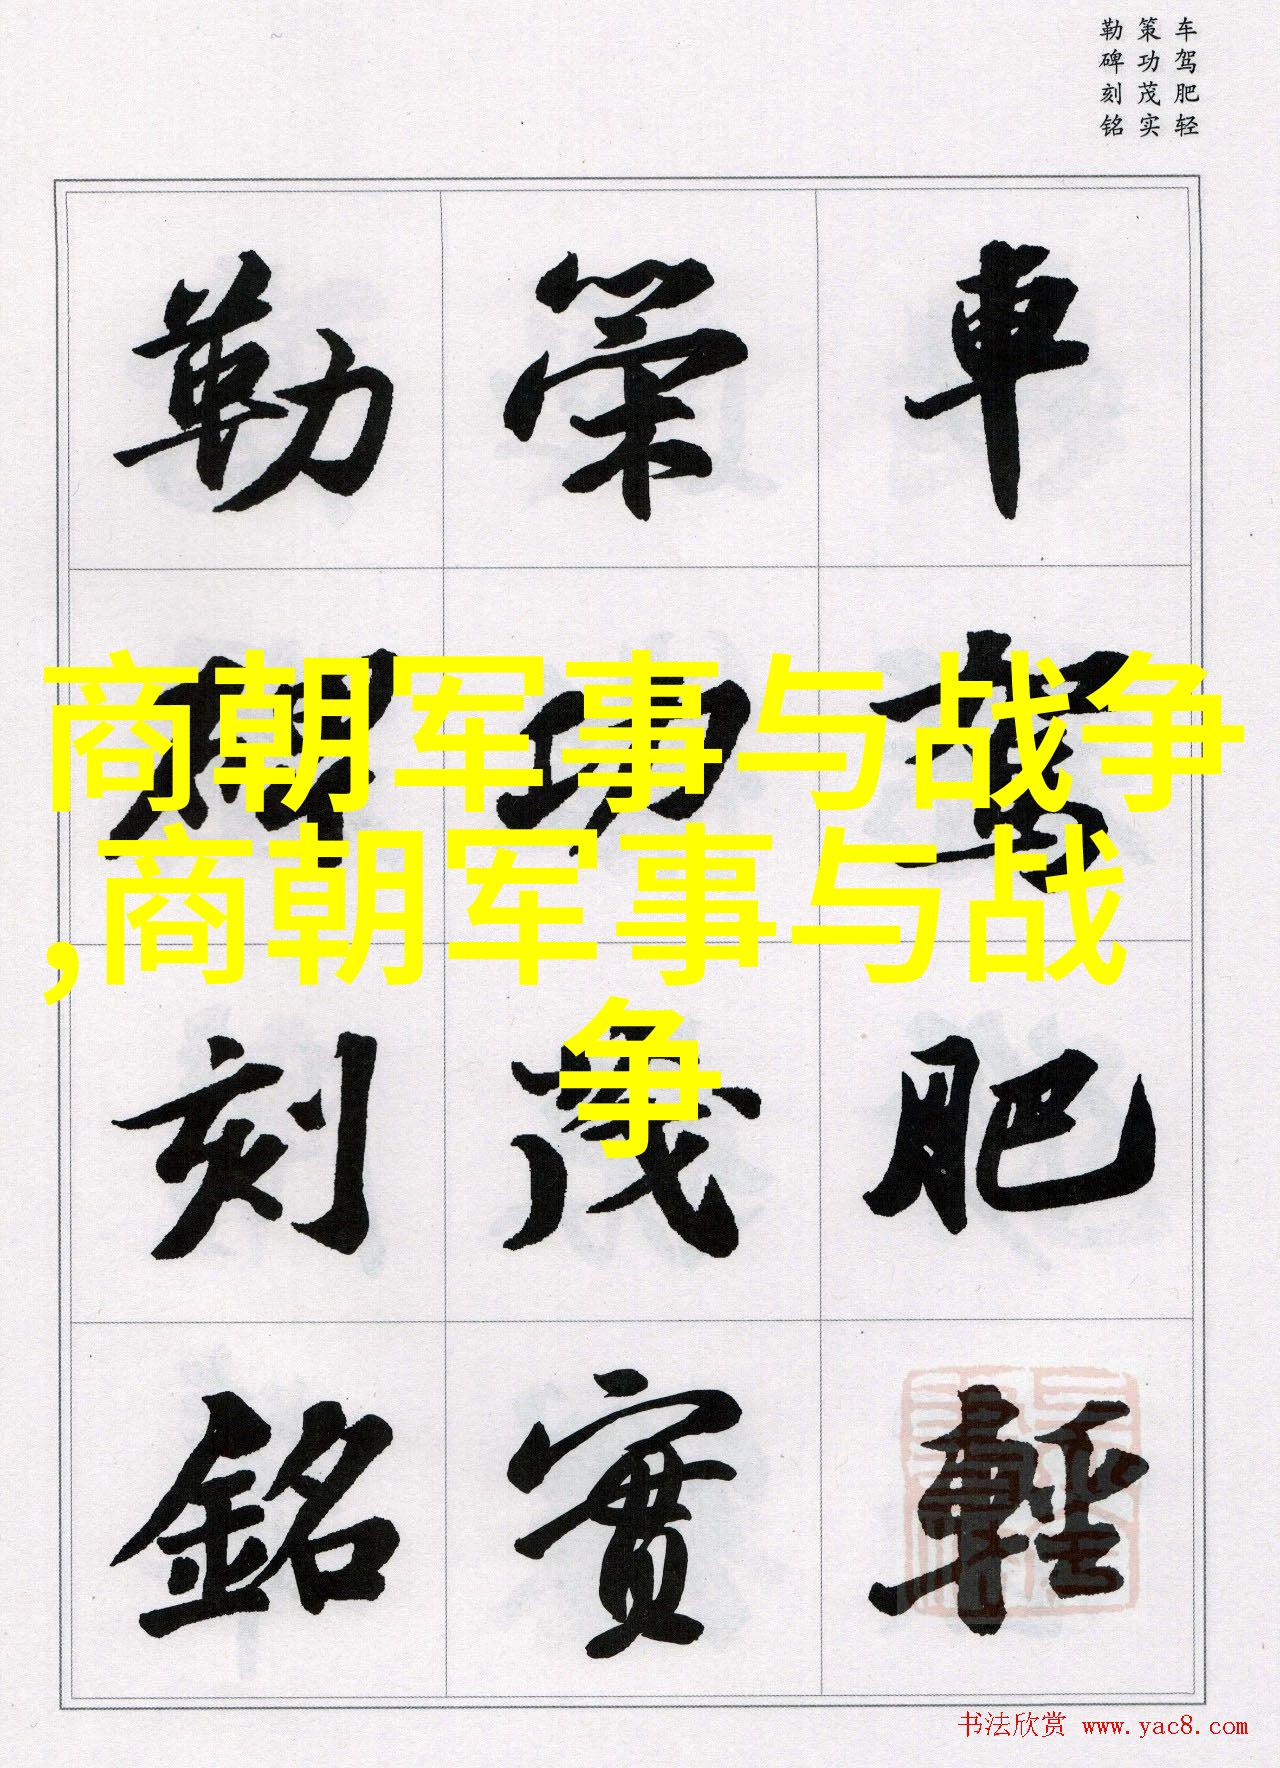 车驾肥轻
策功茂实
勒碑刻铭
車駕肥輕
策功茂實
勒碑刻銘
商朝军事与战争
,商朝军事与战
争
书法欣赏 www.yac8.com